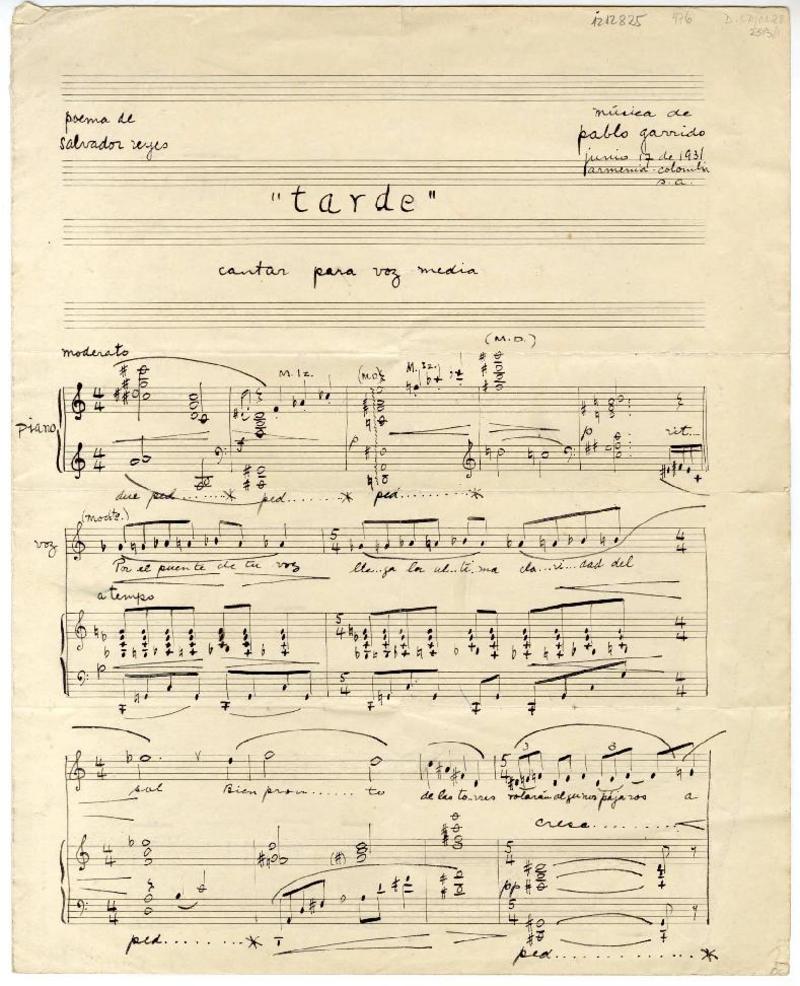 1212825 976
poema de
salvador reyes
música de
pablo garrido
junio 17 de 1931
armenia-colombia
s.a.
"tarde"
cantar para voz media
moderato
(M.D.)
M.Iz. (M.D.) M.Iz.
piano
p p rit...
due ped......* ped......* ped......*
(modto.)
voz
Por el puente de tu voz lle..ga la ul..ti..ma cla..ri..dad del
a tempo
p
3 6
sol Bien pron......to de las torres volarán algunos pájaros a
cresc........
pp
ped.......* ped............*